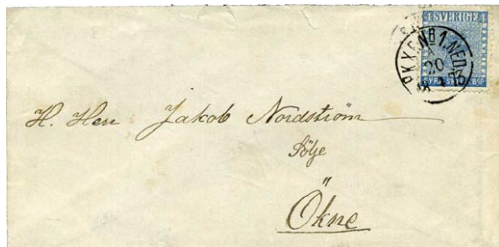 4 SVERIGE 4
PKXP. N:o 1. NED.
20
H. Herr Jakob Nordström
Sölje
Ökne